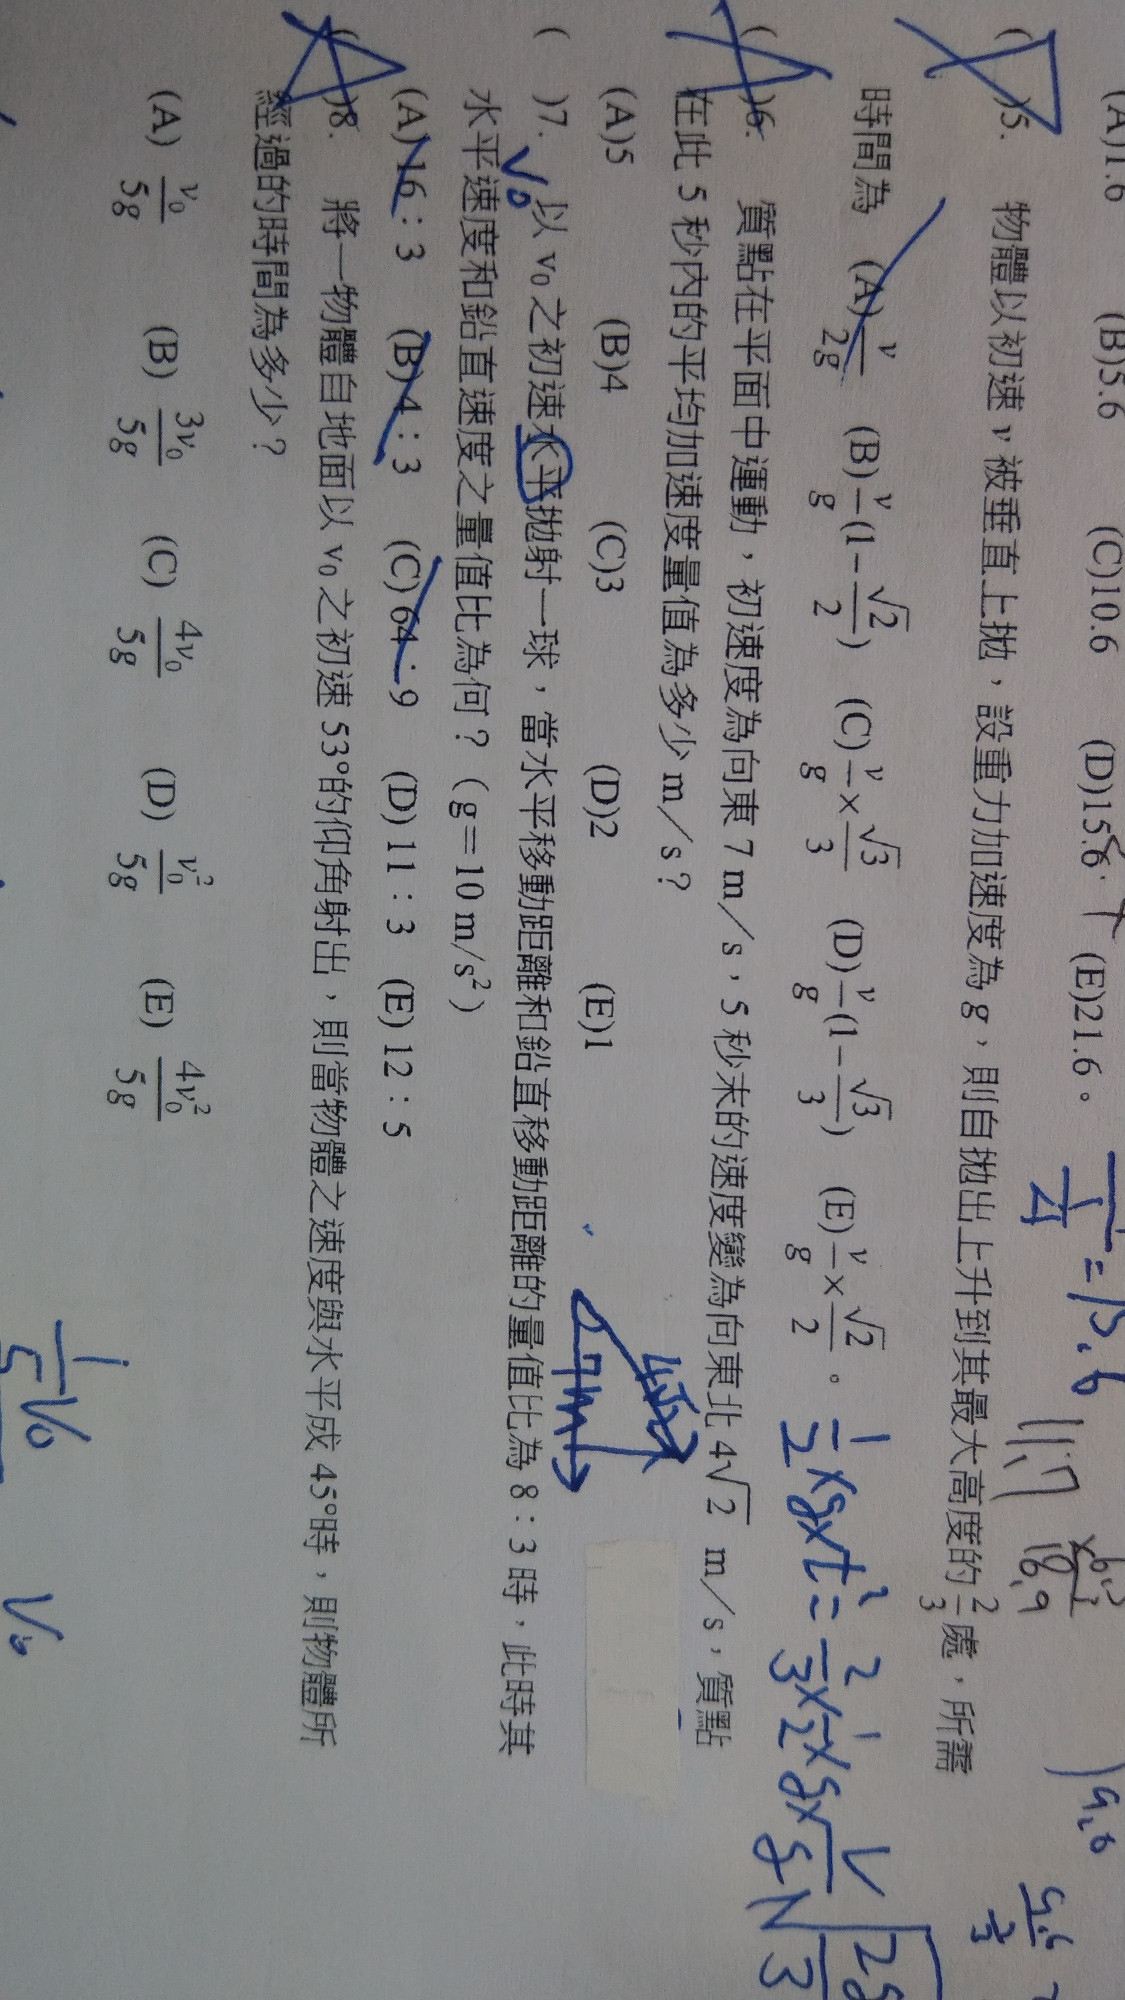 (A)1.6 (B)5.6 (C)10.6 (D)15.6 (E)21.6。
( )5. 物體以初速 v 被垂直上拋，設重力加速度為 g，則自拋出上升到其最大高度的 2/3 處，所需
時間為 (A) v/2g (B) v/g(1−√2/2) (C) v/g×√3/3 (D) v/g(1−√3/3) (E) v/g×√2/2。
1/2×g×t²=2/3×1/2×g×
( )6. 質點在平面中運動，初速度為向東 7 m／s，5 秒末的速度變為向東北 4√2 m／s，質點
在此 5 秒內的平均加速度量值為多少 m／s？
(A)5 (B)4 (C)3 (D)2 (E)1
4√2
( )7. 以 v₀ 之初速水平拋射一球，當水平移動距離和鉛直移動距離的量值比為 8：3 時，此時其
V₀
水平速度和鉛直速度之量值比為何？（g＝10 m/s²）
(A) 16：3 (B) 4：3 (C) 64：9 (D) 11：3 (E) 12：5
( )8. 將一物體自地面以 v₀ 之初速 53°的仰角射出，則當物體之速度與水平成 45°時，則物體所
經過的時間為多少？
(A) v₀/5g (B) 3v₀/5g (C) 4v₀/5g (D) v₀²/5g (E) 4v₀²/5g
1/5 V₀
V₀